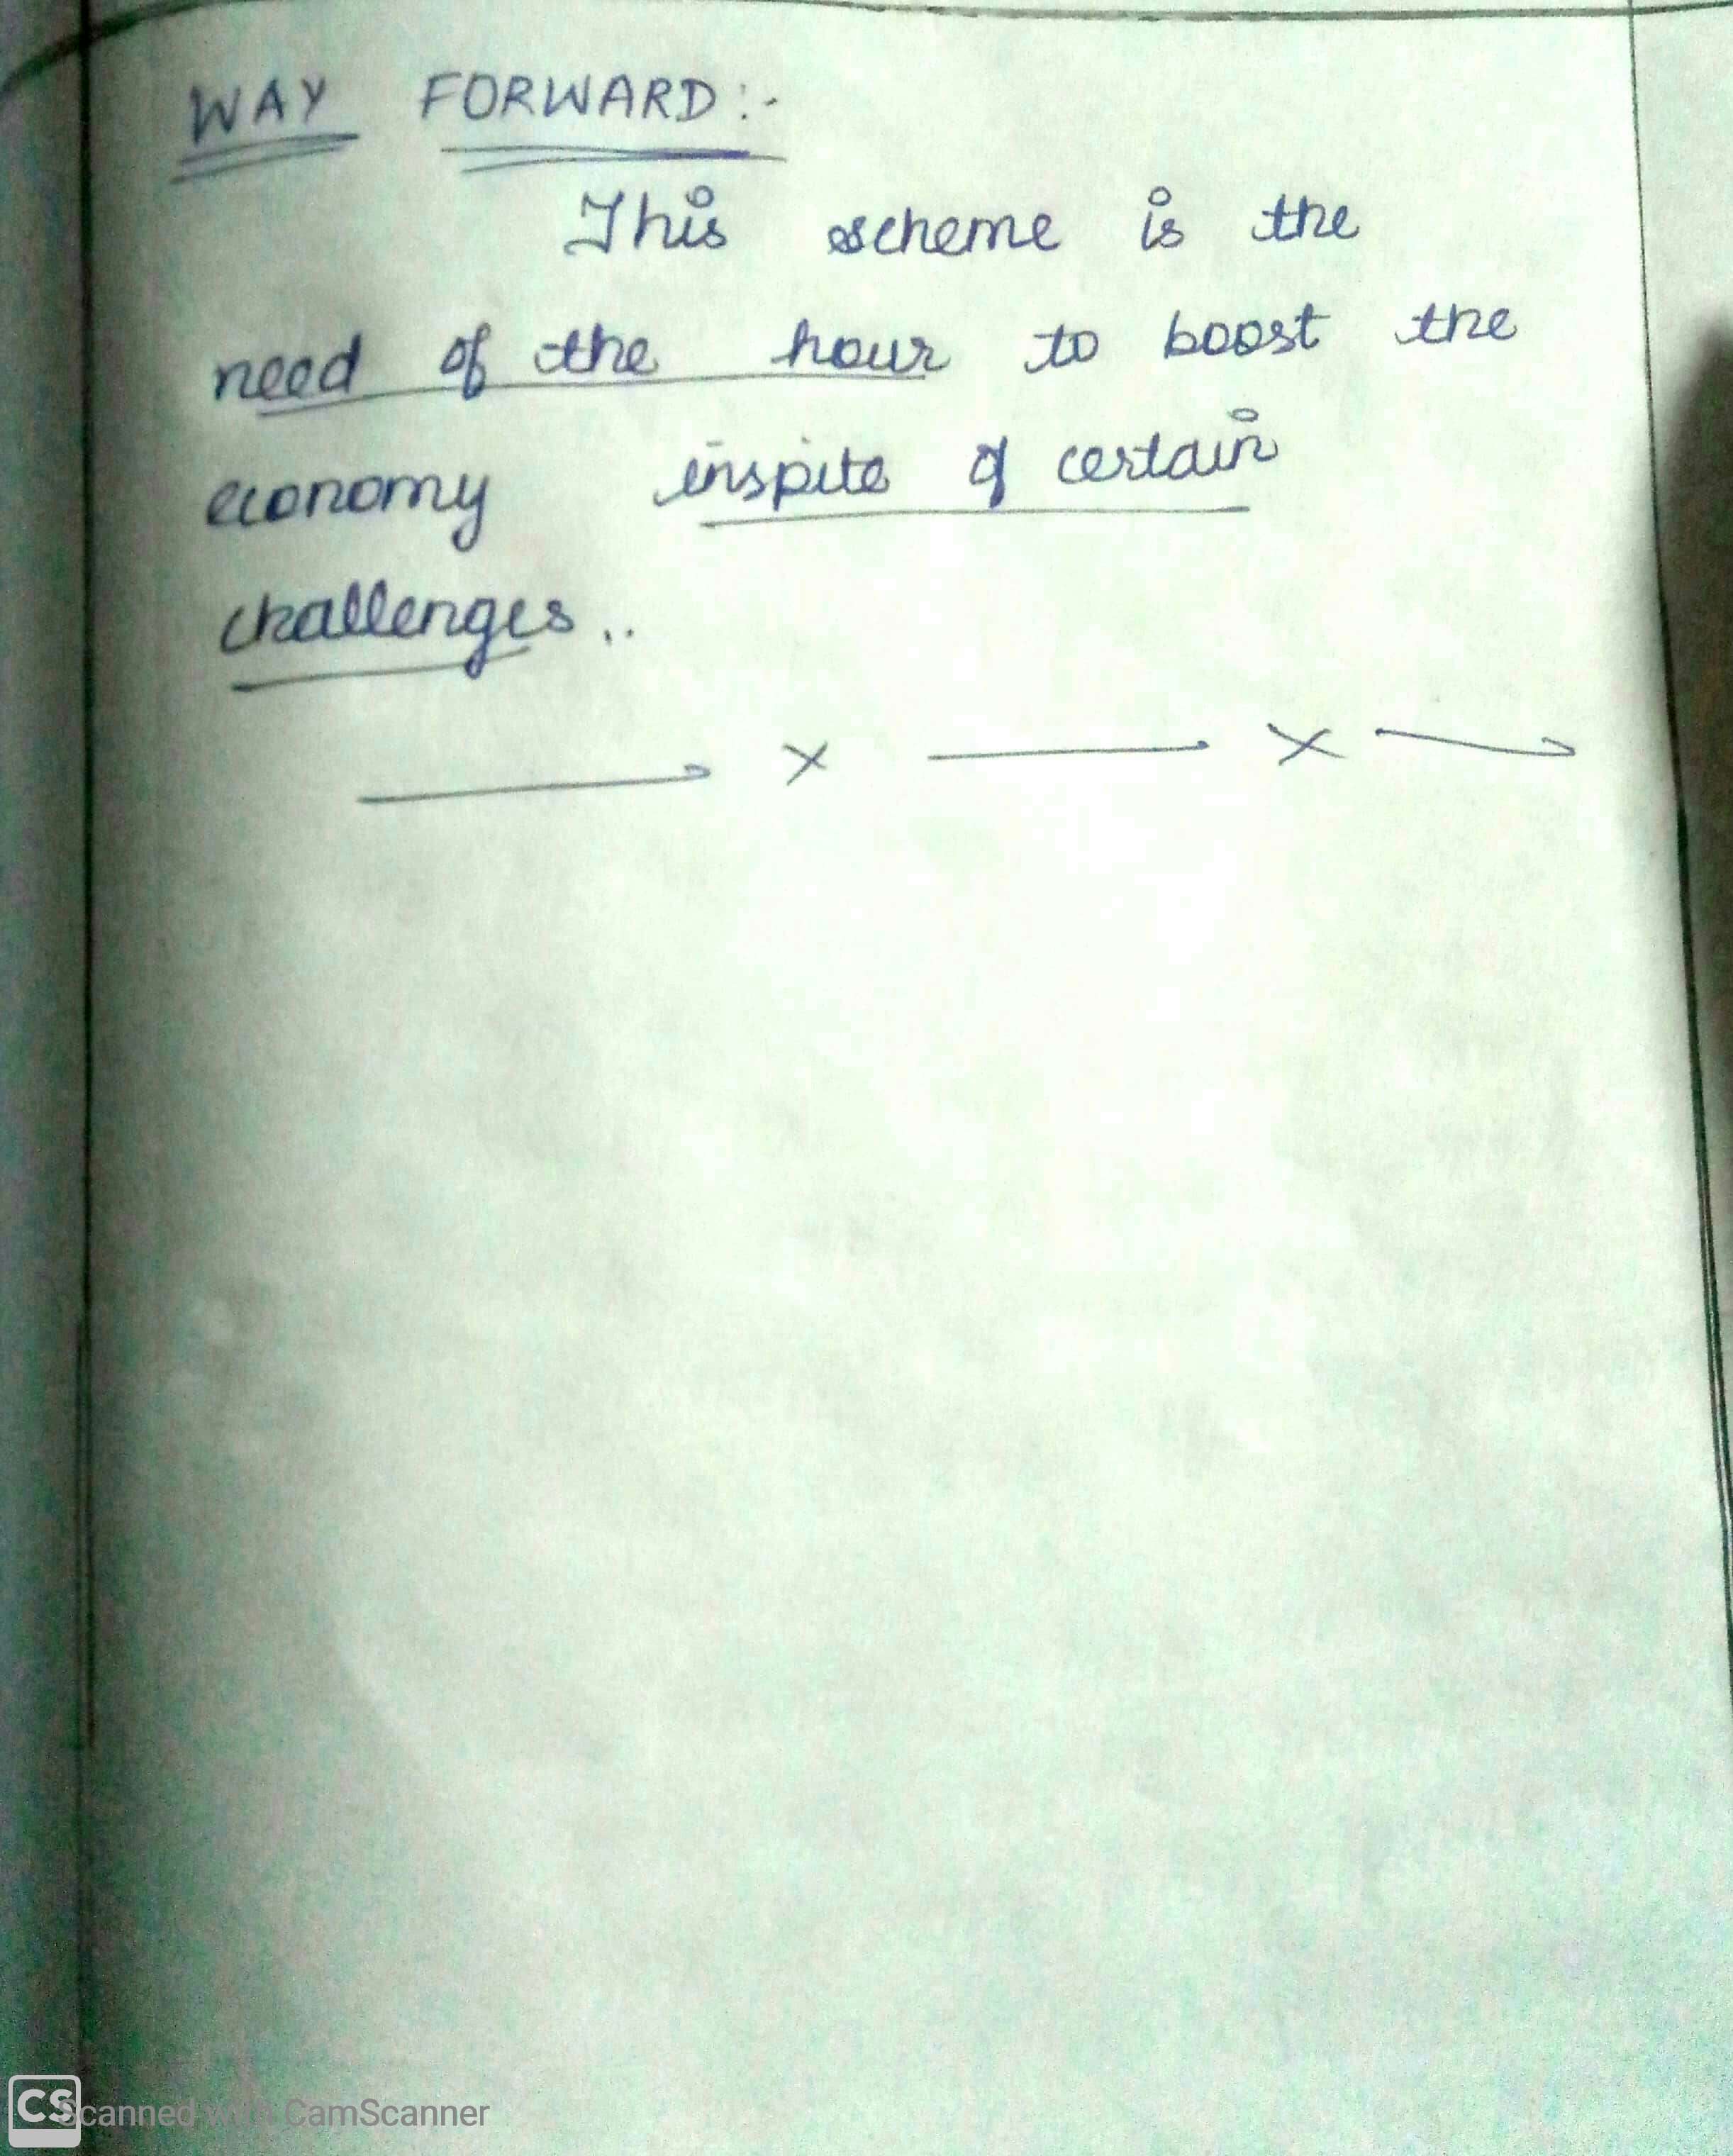 WAY FORWARD:-
This scheme is the
need of the hour to boost the
economy inspite of certain
challenges..
x x
CS Scanned with CamScanner